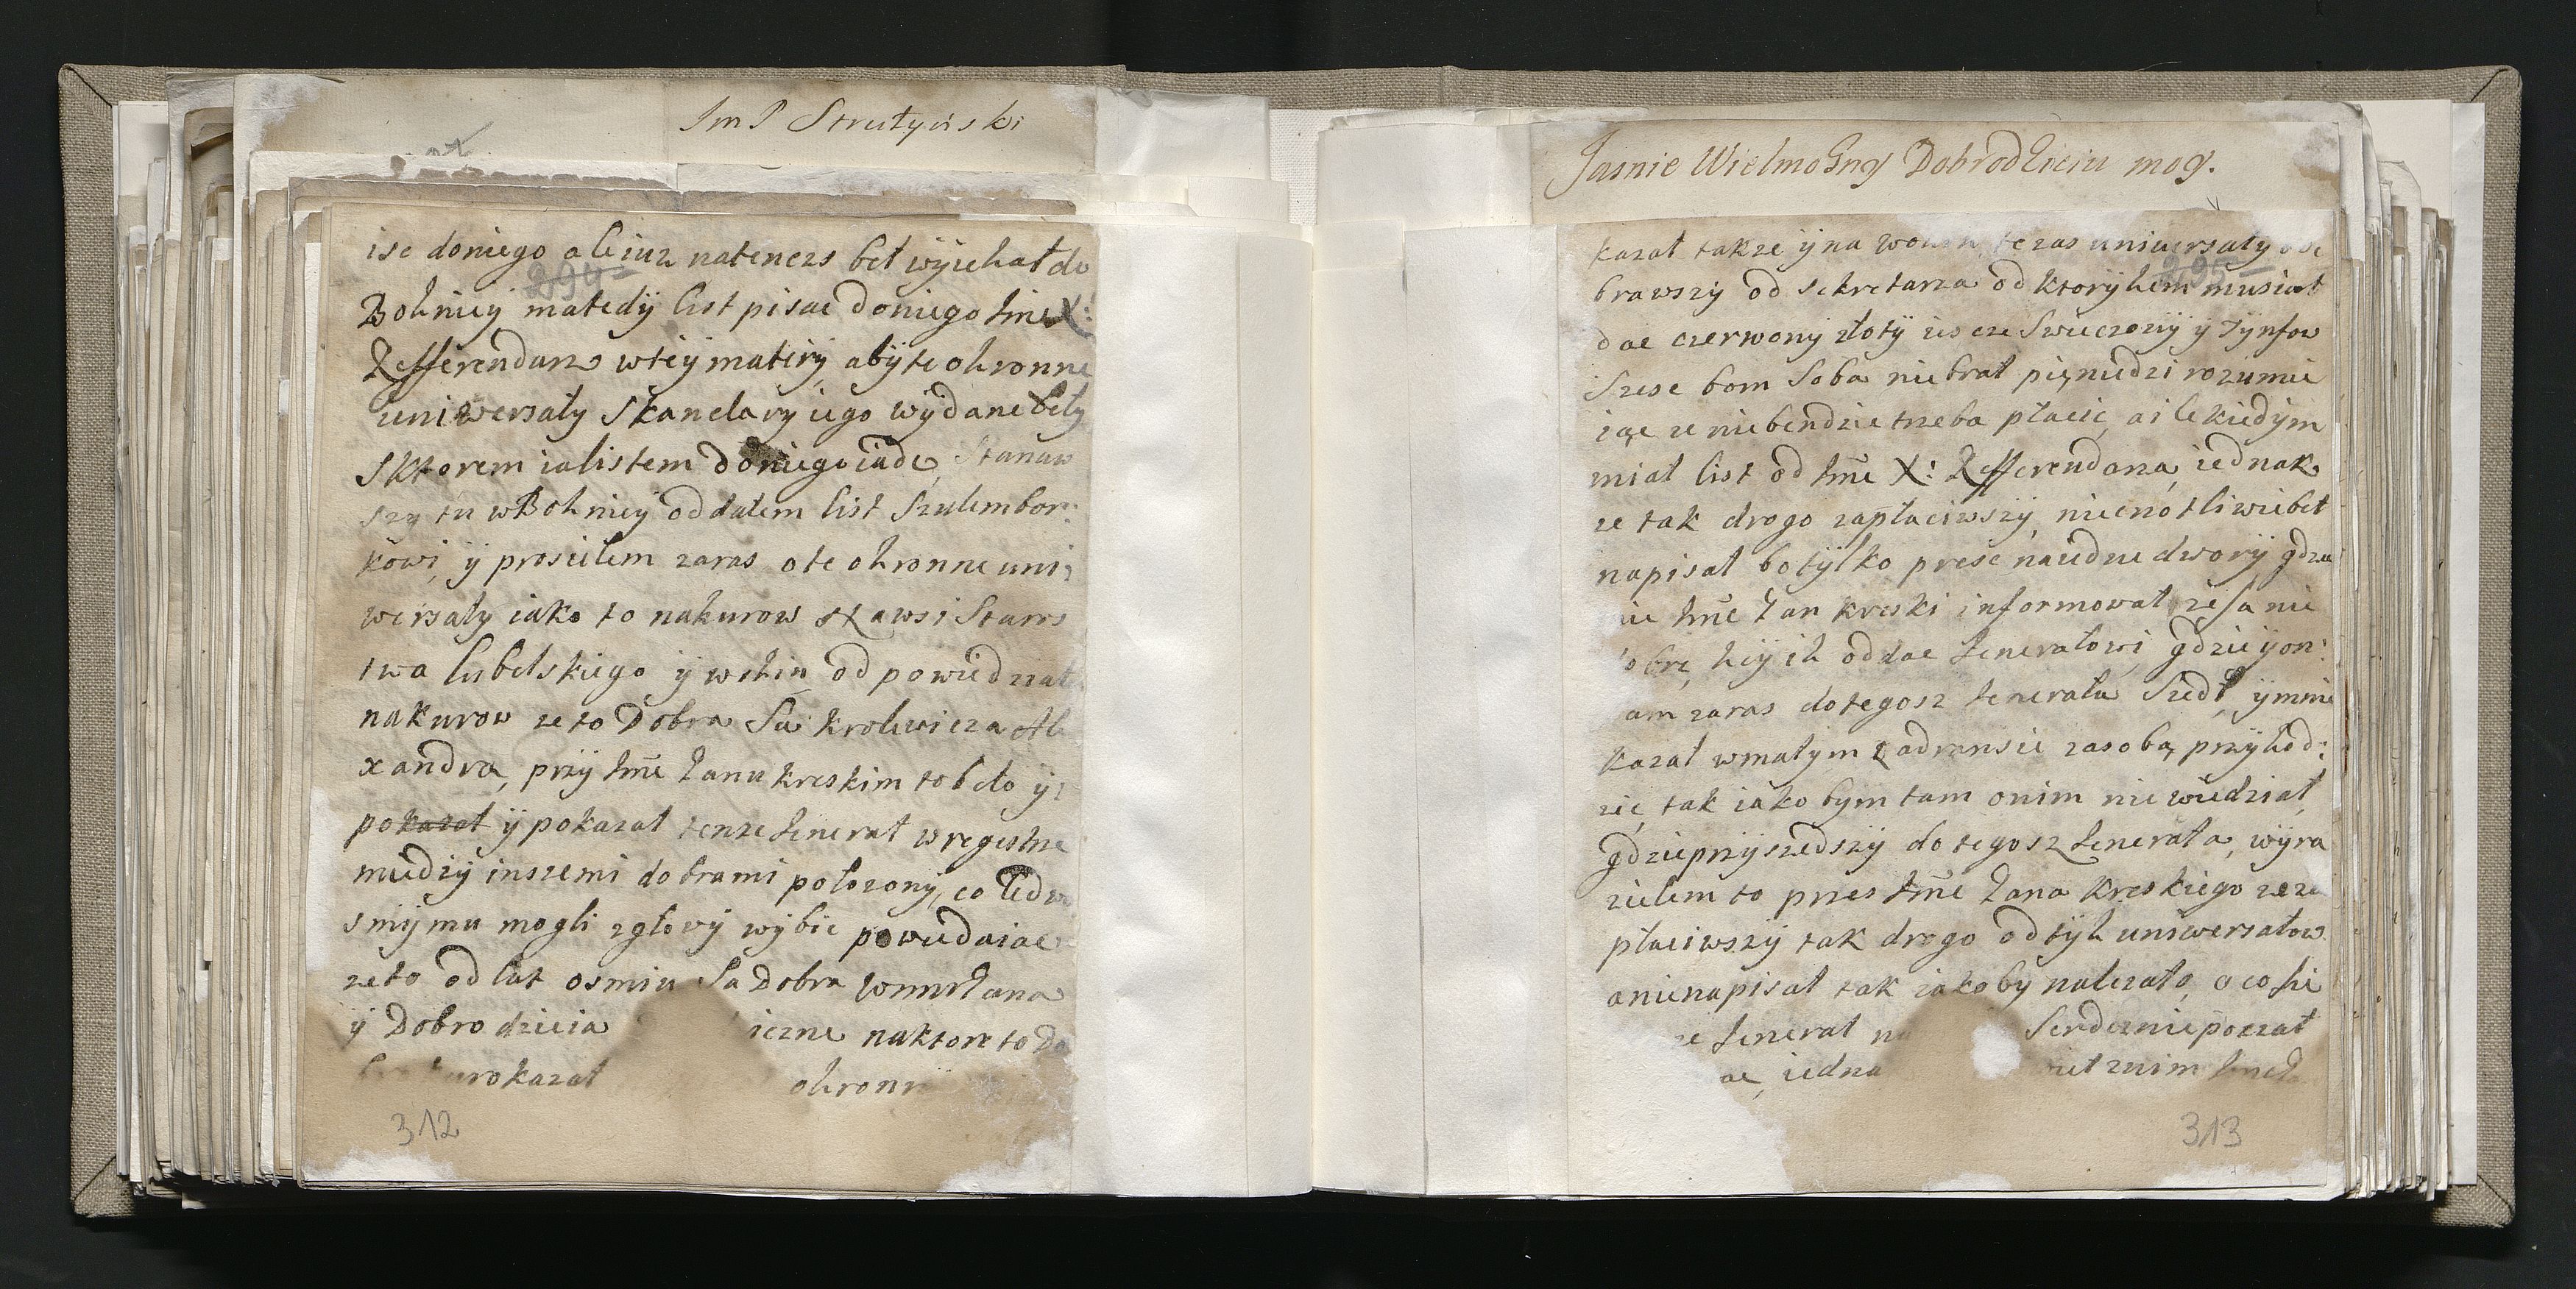 Im P Strutyński
294
isc doniego ale iuz natenczs beł wyiehał do
Bohniey ma tedÿ list pisac doniego Jme X:
Refferendarz wteÿ materÿ, abÿ te ohronne
uniwersały Skancelary iego wÿdane beły
Sktorem ia listem doniego iade, Stanaw
szy tu wBohniey oddałem list Szulembor:
kowi, ÿ prosiełem zaras o te ohronne uni:
wersały iako to nakurow xt awsi Staros
twa lubelskiego ÿ wchin odpowiedział
nakurow ze to Dobra Są krolewicza Ale
xandra, przÿ Jme Panu kreskim to beło ÿ
pokazał ÿ pokazał tenze Jenerał wregestrze
miedzÿ inszemi dobrami połozonÿ, co ledwo
smÿ mu mogli zgłowÿ wÿbic powiedaiac
ze to od lat osmiu Są Dobra WmmPana
ÿ Dobrodzieia iczne naktore to Do
kazał ohronn
312
Jasnie WielmoSny Dobrodzieiu moy.
295
kazał takze ÿ na teras uniwersały ode
brawszÿ od sekretarza od ktorÿhem musiał
dac czerwonÿ złotÿ iescze Swieczozÿ ÿ Tÿnfow
Szesc bom Soba nie brał pięniedzi rozumie
iąc ze nie bendzie trzeba płacic, a ile kiedÿm
miał list od Jme X: Refferendarza, iednak
ze tak drogo zapłaciwszÿ, niecnotliwie beł
napisał bo tÿlko presc na iedne dworÿ gdzie
mie Jme Pan kreski informował ze sa nie
obre, heÿ ih oddac Jenerałowi gdzie ÿ on:
am zaras do tegosz Jenerała Szedł, ÿ mnie
kazał wmałym zadransie zasobą przÿhod:
zic, tak iako bym tam onim nie wiedział,
gdzie przÿszedszÿ do tegosz Jenerała, wÿra
ziełem to przes Jme Pana kreskiego ze za
płaciwszÿ tak drogo odtÿh uniwersałow
a nie napisał tak iako by nalezało, o co sie
ze Jenerał na Serdecznie poczał
ac, iedna znim
313